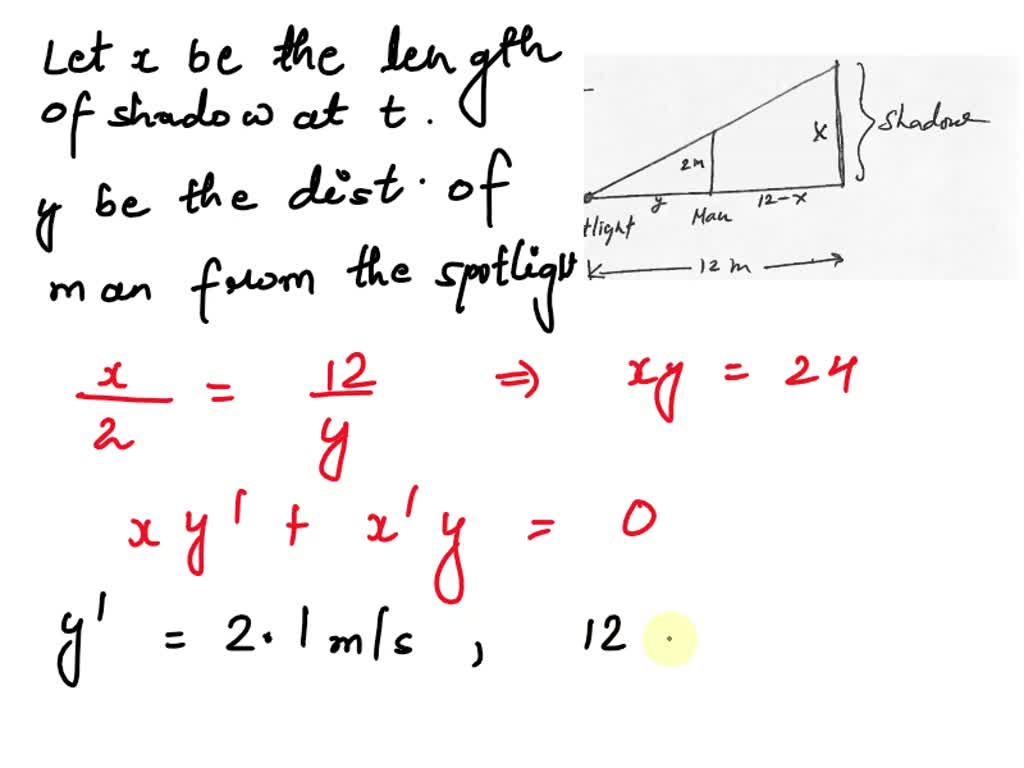 Let x be the length
of shadow at t.
y be the dist. of
man from the spotlight
x/2 = 12/y ⇒ xy = 24
xy' + x'y = 0
y' = 2.1 m/s, 12
x
2m
y
12-x
tlight
Man
12 m